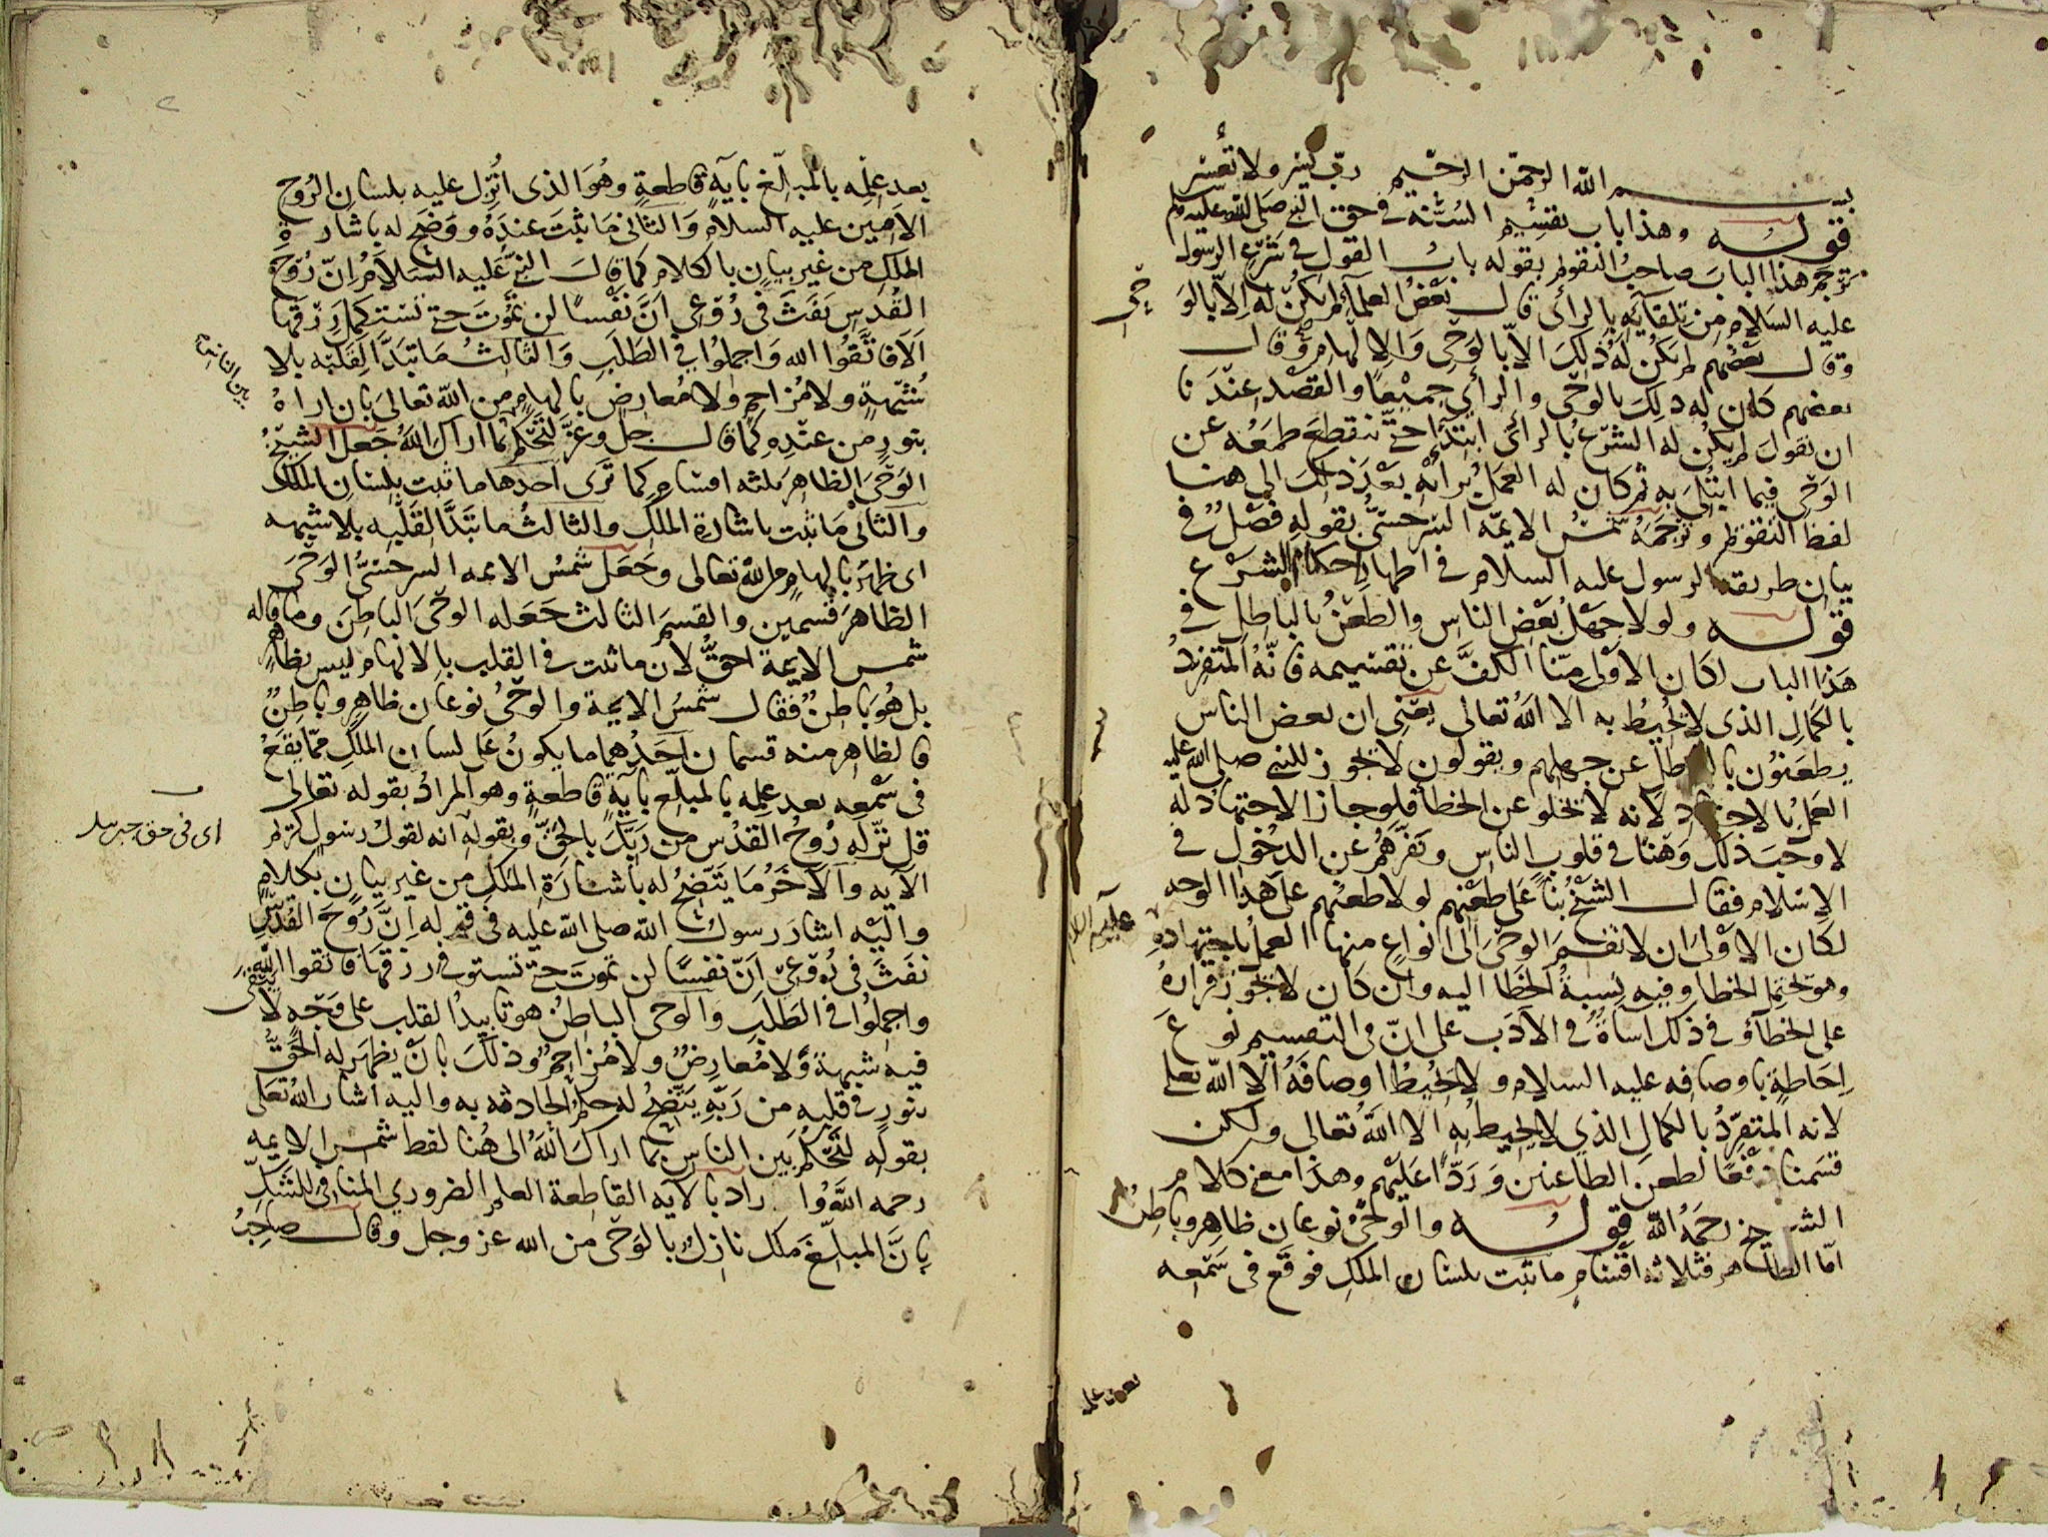 بسم الله الرحمن الرحيم رب يسر ولا تعسر
قوله وهذا باب تقسيم السنة في حق النبي صلى الله عليه وسلم
ترجم هذا الباب صاحب التقويم بقوله باب القول في شرع الرسول
عليه السلام من تلقايه بالرأى قال بعض العلماء لم يكن له إلا بالوحى
وقال بعضهم لم يكن له ذلك الا بالوحى والالهام وقال
بعضهم كان له ذلك بالوحى والرأي جميعا والقصد عندنا
ان نقول لم يكن له الشرع بالرأى ابتداء حتى ننقطع طمعه عن
الوحى فيما ابتلى به ثم كان له العمل برأيه بعد ذلك الى هنا
لفظ التقويم وترجمه شمس الايمة السرخسى بقوله فصل في
بيان طريقة الرسول عليه السلام في اظهار احكام الشرع
قوله ولولا جهل بعض الناس والطعن بالباطل في
هذا الباب لكان الاولى منا الكف عن تقسيمه فانه المتفرد
بالكمال الذى لا يحيط به الا الله تعالى يعنى ان بعض الناس
يطعنون بالباطل عن جهلهم ويقولون لا يجوز للنبي صلى الله عليه
العمل بالاجتهاد لانه لا يخلو عن الخطأ فلو جاز الاجتهاد له
لاوجب ذلك وهنا في قلوب الناس ونفرهم عن الدخول في
الاسلام فقال الشيخ بنا على طعنهم لولا طعنهم على هذا الوجه
لكان الاولى ان لا نقسم الوحى الى انواع منها العمل باجتهاده
وهو يحتمل الخطا وفيه نسبة الخطا اليه وان كان لا يجوز قراره
على الخطا وفي ذلك اساة في الادب على ان في التقسيم نوع
احاطة باوصافه عليه السلام ولا يحيط اوصافه الا الله تعالى
لانه المتفرد بالكمال الذي لا يحيط به الا الله تعالى ولكن
قسمنا دفعا لطعن الطاعنين وردا عليهم وهذا معنى كلام
الشيخ رحمه الله قوله والوحى نوعان ظاهر وباطن
اما الظاهر فثلاثة اقسام ما ثبت بلسان الملك فوقع في سمعه
عليه السلام
بعد علمه بالمبلغ بآية قاطعة وهو الذى انزل عليه بلسان الروح
الامين عليه السلام والثانى ما ثبت عنده ووضح له باشارة
الملك من غير بيان بالكلام كما قال النبي عليه السلام ان روح
القدس نفث في روعى ان نفسا لن تموت حتى تستكمل رزقها
الا فاتقوا الله واجملوا في الطلب والثالث ما تبدا لقلبه بلا
شبهة ولا مزاحم ولا معارض بالهام من الله تعالى بان اراه
بنور من عنده كما قال جل وعز لتحكم بما اراك الله جعل الشيخ
الوحى الظاهر ثلثة اقسام كما ترى احدها ما ثبت بلسان الملك
والثانى ما ثبت باشارة الملك والثالث ما تبدا لقلبه بلا شبهه
اى ظهر بالهام من الله تعالى وجعل شمس الايمه السرخسى الوحى
الظاهر قسمين والقسم الثالث جعله الوحى الباطن وما قاله
شمس الايمة احق لان ما ثبت في القلب بالالهام ليس بظاهر
بل هو باطن فقال شمس الايمة والوحى نوعان ظاهر وباطن
فالظاهر منه قسمان احدهما ما يكون على لسان الملك مما يقع
في سمعه بعد علمه بالمبلغ بآية قاطعة وهو المراد بقوله تعالى
قل نزله روح القدس من ربك بالحق وبقوله انه لقول رسول كريم
اى في حق جبريل
الآيه والآخر ما يتضح له باشارة الملك من غير بيان بكلام
واليه اشار رسول الله صلى الله عليه في قوله ان روح القدس
نفث في روعى ان نفسا لن تموت حتى تستوفي رزقها فاتقوا الله
واجملوا في الطلب والوحى الباطن هو تاييد القلب على وجه لا يبقى
فيه شبهة ولا معارض ولا مزاحم وذلك بان يظهر له الحق
بنور في قلبه من ربه يتضح له حكم الحادثه به واليه اشار الله تعالى
بقوله لتحكم بين الناس بما اراك الله الى هنا لفظ شمس الايمه
رحمه الله وا راد بالآيه القاطعة العلم الضروري المنافى للشك
بان المبلغ ملك نازل بالوحى من الله عز وجل وقال صاحب